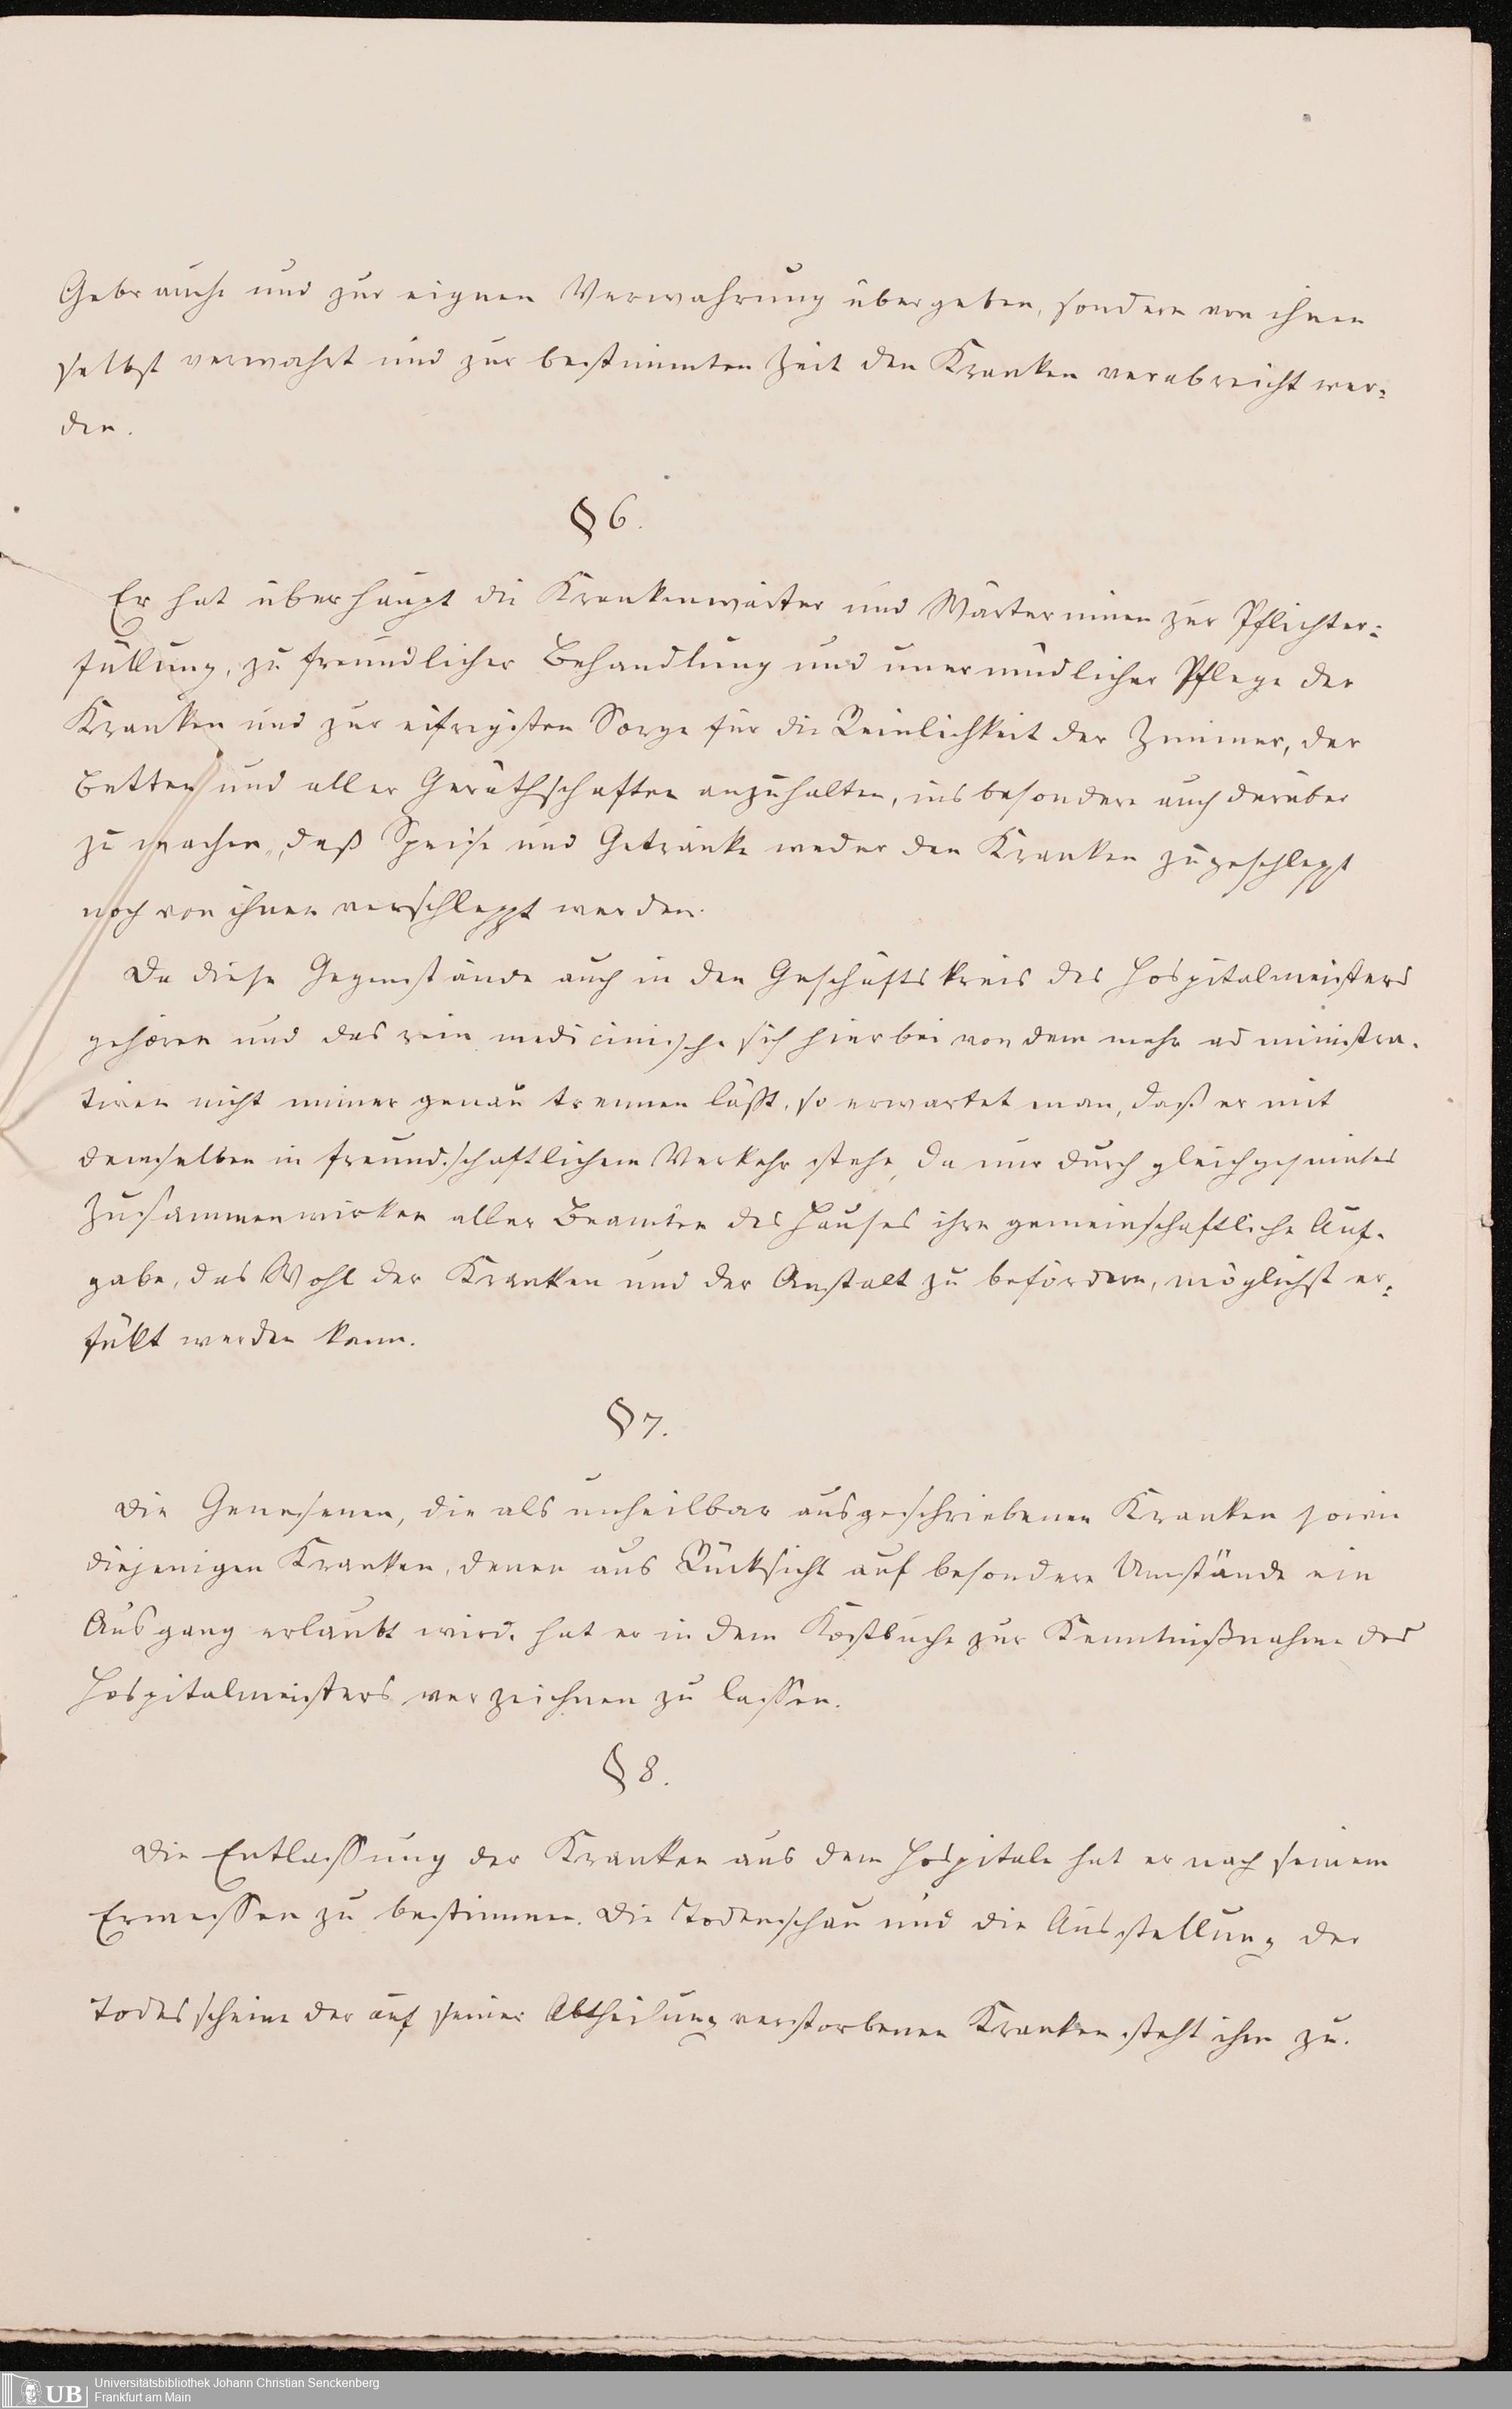 Gebrauche und zur eignen Verwahrung übergeben, sondern von ihnen
selbst verwahrt und zur bestimmten Zeit den Kranken verabreicht wer-
den.
§ 6.
Er hat überhaupt die Krankenwärter und Wärterinen zur Pflichter-
füllung, zu freundlicher Behandlung und unermüdlicher Pflege der
Kranken und zur eifrigsten Sorge für die Reinlichkeit der Zimmer, der
Betten und aller Geräthschaften anzuhalten, insbesondere auch darüber
zu wachen, daß Speise und Getränke weder den Kranken zugeschleppt
noch von ihnen verschleppt werden.
Da diese Gegenstände auch in den Geschäftskreis des Hospitalmeisters
gehören und das rein medicinische sich hierbei von dem mehr administra-
tiven nicht immer genau trennen läßt, so erwartet man, daß er mit
demselben in freundschaftlichem Verkehr stehe, da nur durch gleichgesinntes
Zusammenwirken aller Beamten des Hauses ihre gemeinschaftliche Auf-
gabe, das Wohl der Kranken und der Anstalt zu befördern, möglichst er-
füllt werden kann.
§ 7.
Die Genesenen, die als unheilbar ausgeschriebenen Kranken sowie
diejenigen Kranken, denen aus Rücksicht auf besondere Umstände ein
Ausgang erlaubt wird, hat er in dem Kostbuche zur Kenntnißnahme des
Hospitalmeisters verzeichnen zu lassen.
§ 8.
Die Entlassung der Kranken aus dem Hospitale hat er nach seinem
Ermessen zu bestimmen. Die Todenschau und die Ausstellung der
Todesscheine der auf seiner Abtheilung verstorbenen Kranken steht ihm zu.
UB
Universitätsbibliothek Johann Christian Senckenberg
Frankfurt am Main